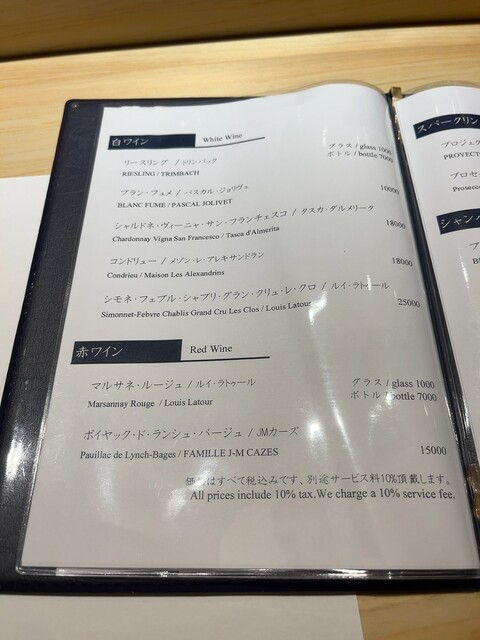 白ワイン White Wine
リースリング / トリンバック グラス / glass 1000
RIESLING / TRIMBACH ボトル / bottle 7000
ブラン・フュメ / パスカル・ジョリヴェ 10000
BLANC FUME / PASCAL JOLIVET
シャルドネ・ヴィーニャ・サン・フランチェスコ / タスカ・ダルメリータ 18000
Chardonnay Vigna San Francesco / Tasca d'Almerita
コンドリュー / メゾン・レ・アレキサンドラン 18000
Condrieu / Maison Les Alexandrins
シモネ・フェブル・シャブリ・グラン・クリュ・レ・クロ / ルイ・ラトゥール 25000
Simonnet-Febvre Chablis Grand Cru Les Clos / Louis Latour
赤ワイン Red Wine
マルサネ・ルージュ / ルイ・ラトゥール グラス / glass 1000
Marsannay Rouge / Louis Latour ボトル / bottle 7000
ポイヤック・ド・ランシュ・バージュ / JMカーズ
Pauillac de Lynch-Bages / FAMILLE J-M CAZES 15000
価格はすべて税込みです、別途サービス料10%頂戴します。
All prices include 10% tax.We charge a 10% service fee.
スパークリン
プロジェク
PROYECT
プロセ
Prosecc
シャン